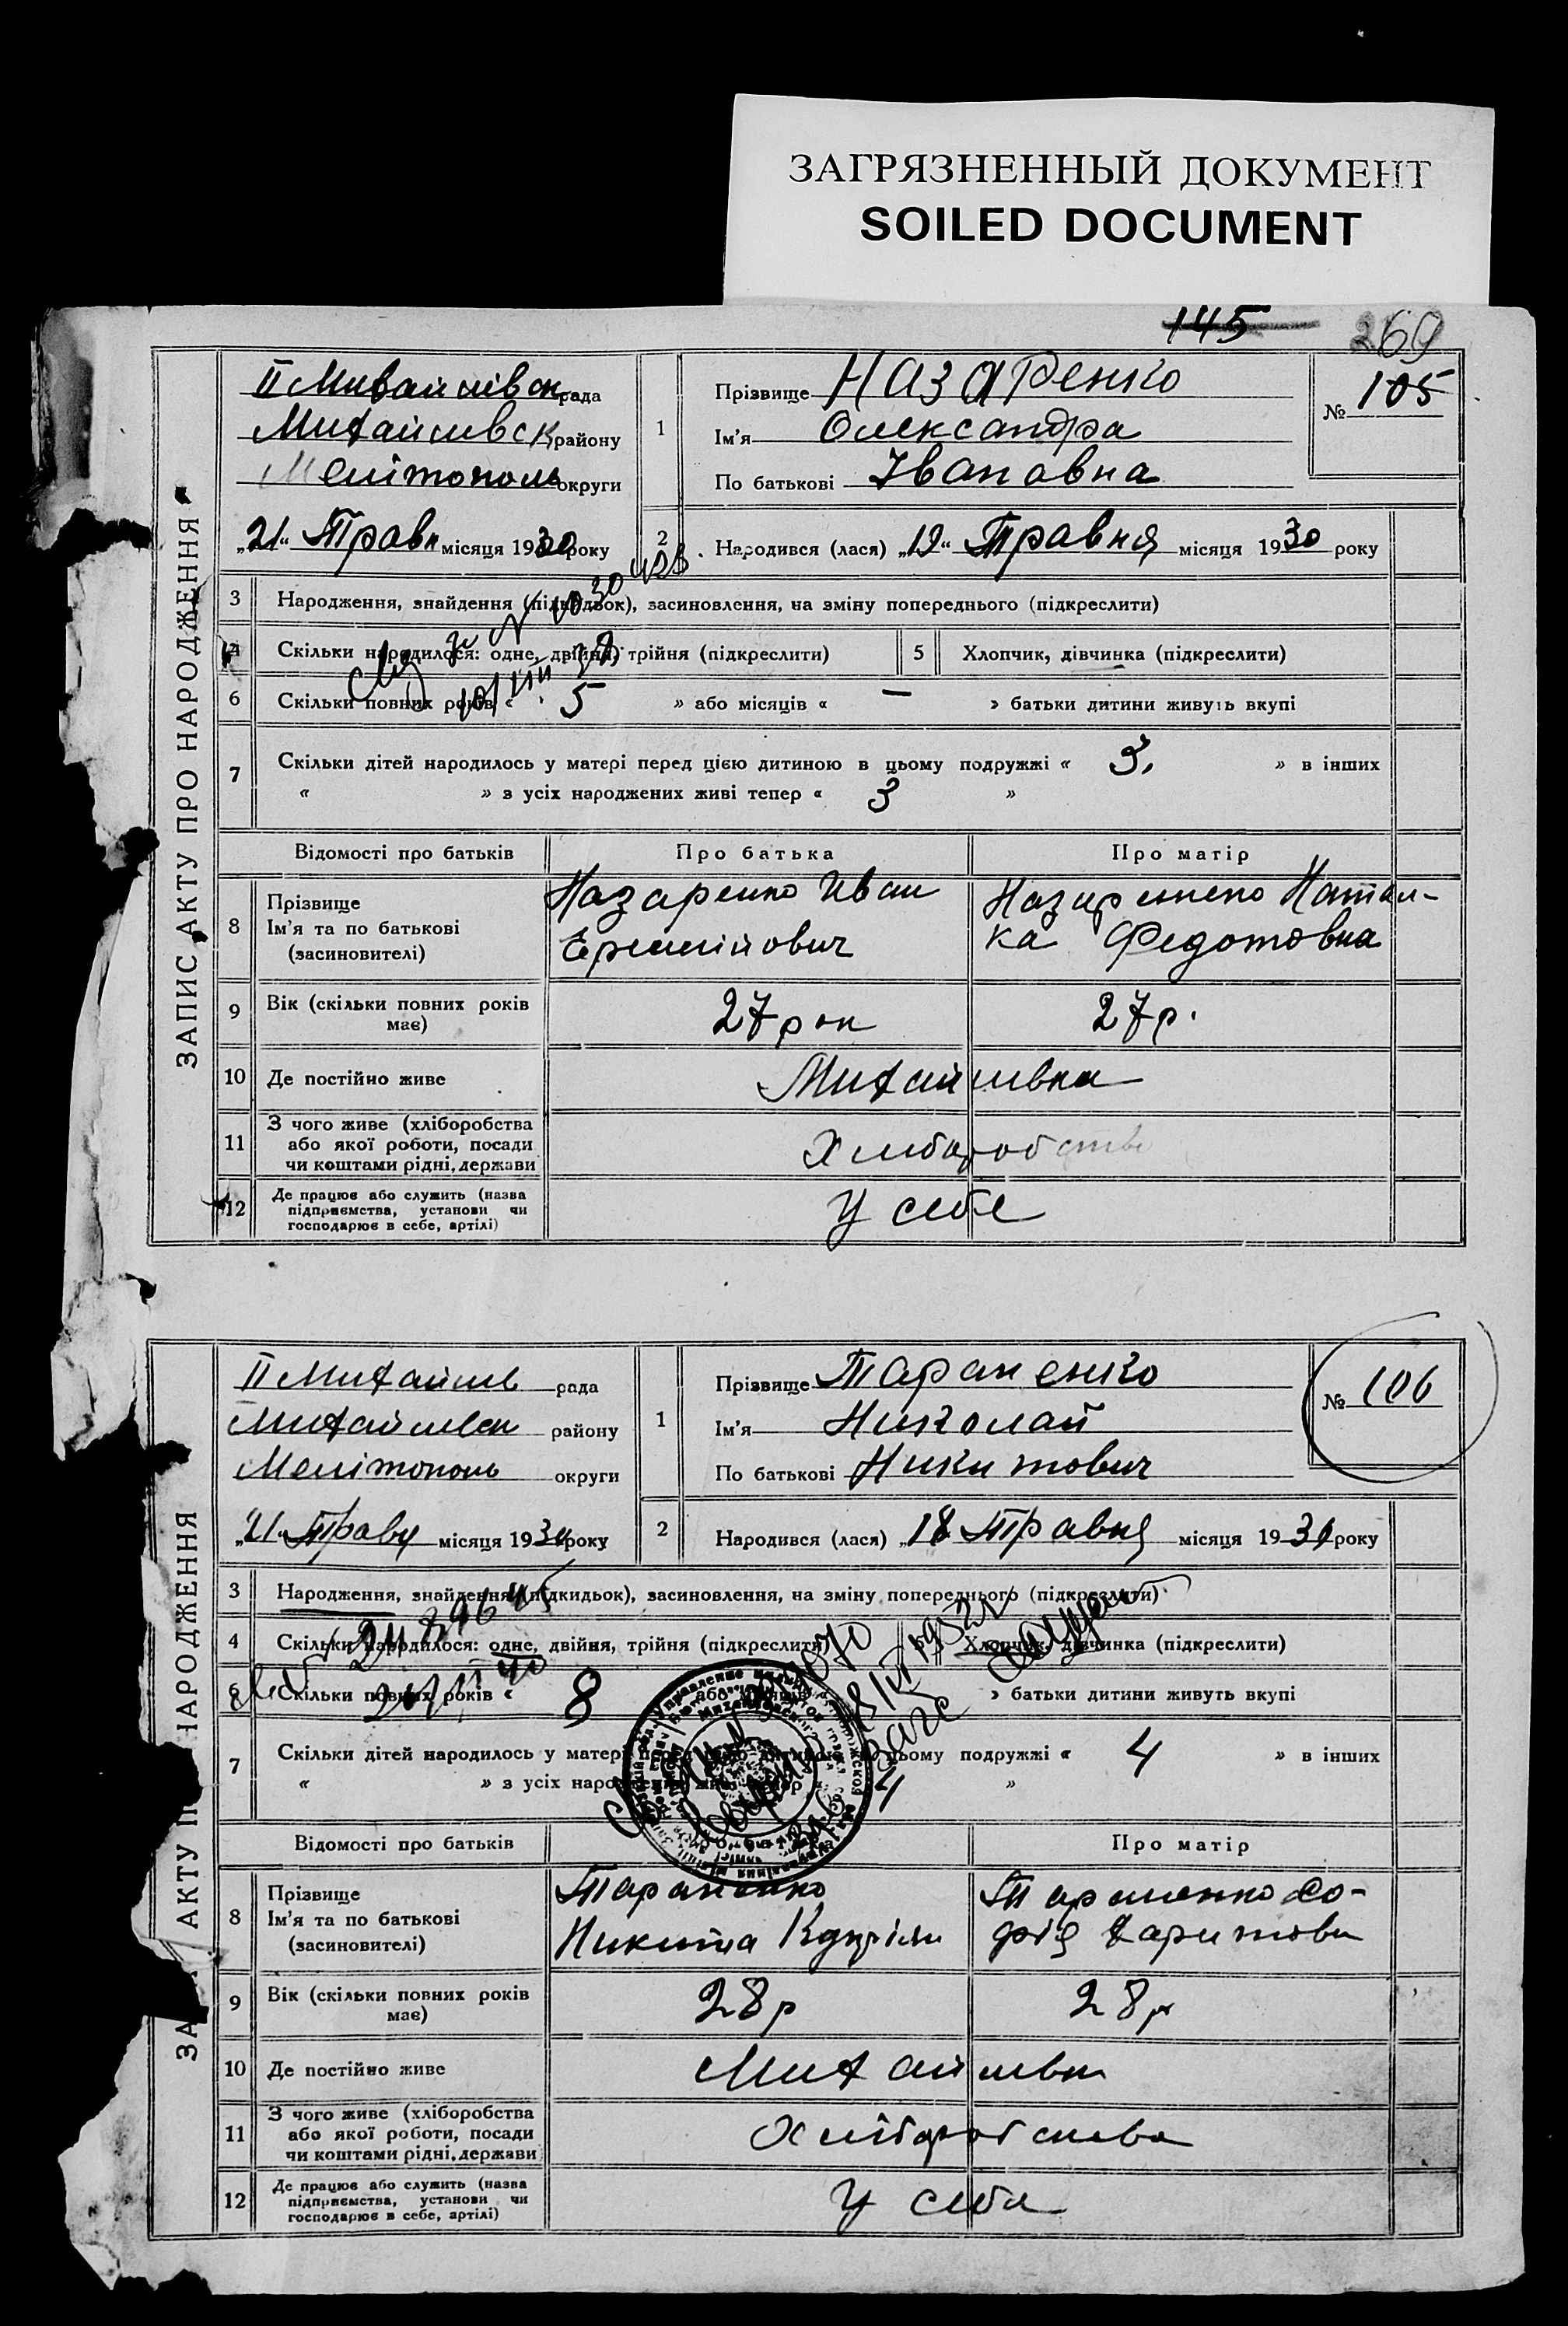 ЗАГРЯЗНЕННЫЙ ДОКУМЕНТ
SOILED DOCUMENT
145 269
ЗАПИС АКТУ ПРО НАРОДЖЕННЯ
II Михайлівск рада
Михайлівск району
Мелітополь округи
"21" Травн місяця 1930 року
1 Прізвище Назаренко
Ім'я Олександра
По батькові Івановна
№ 105
2 Народився (лася) "19" Травня місяця 1930 року
3 Народження, знайдення (підкидьок), засиновлення, на зміну попереднього (підкреслити)
4 Скільки народилося: одне, двійня, трійня (підкреслити) 5 Хлопчик, дівчинка (підкреслити)
6 Скільки повних років « 5 » або місяців « — » батьки дитини живуть вкупі
7 Скільки дітей народилось у матері перед цією дитиною в цьому подружжі « 3, » в інших
« » з усіх народжених живі тепер « 3 »
Відомості про батьків Про батька Про матір
8 Прізвище
Ім'я та по батькові
(засиновителі)
Назаренко Иван
Назаренко Натал-
ка Федотовна
9 Вік (скільки повних років має) 27 рок 27 р.
10 Де постійно живе Михайлівка
11 З чого живе (хліборобства
або якої роботи, посади
чи коштами рідні, держави
Хліборобство
12 Де працює або служить (назва
підприємства, установи чи
господарює в себе, артілі)
У себе
ЗА АКТУ П НАРОДЖЕННЯ
II Михайлів рада
Михайлівск району
Мелітополь округи
"21" Травня місяця 1930 року
1 Прізвище Тараненко
Ім'я Николай
По батькові Никитович
№ 106
2 Народився (лася) "18 Травня місяця 1930 року
3 Народження, знайдення (підкидьок), засиновлення, на зміну попереднього (підкреслити)
4 Скільки народилося: одне, двійня, трійня (підкреслити) 5 Хлопчик, дівчинка (підкреслити)
6 Скільки повних років « 8 або місяців « » батьки дитини живуть вкупі
7 Скільки дітей народилось у матері перед цією дитиною в цьому подружжі « 4 » в інших
« » з усіх народжених живі тепер « 4 »
Відомості про батьків Про матір
8 Прізвище
Ім'я та по батькові
(засиновителі)
Тараненко
Никита
Тараненко Со-
фія
9 Вік (скільки повних років має) 28 р 28 р
10 Де постійно живе Михайлівка
11 З чого живе (хліборобства
або якої роботи, посади
чи коштами рідні, держави
Хліборобства
12 Де працює або служить (назва
підприємства, установи чи
господарює в себе, артілі)
У себе